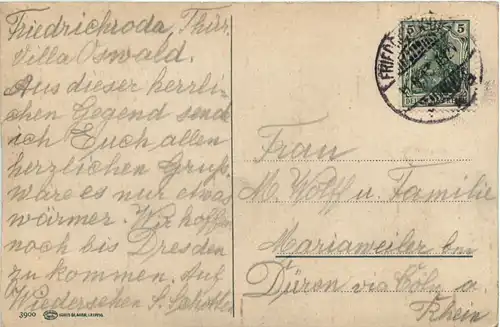 Friedrichroda Thür.
Villa Oswald.
Aus dieser herrli-
chen Gegend send
ich Euch allen
herzlichen Gruß,
wäre es nur etwas
wärmer. Wir hoffen
noch bis Dresden
zu kommen. Auf
Wiedersehen S.
3900
5 5
Frau
M. Wolff u. Familie
Mariaweiler bei
Düren via Cöln a.
Rhein